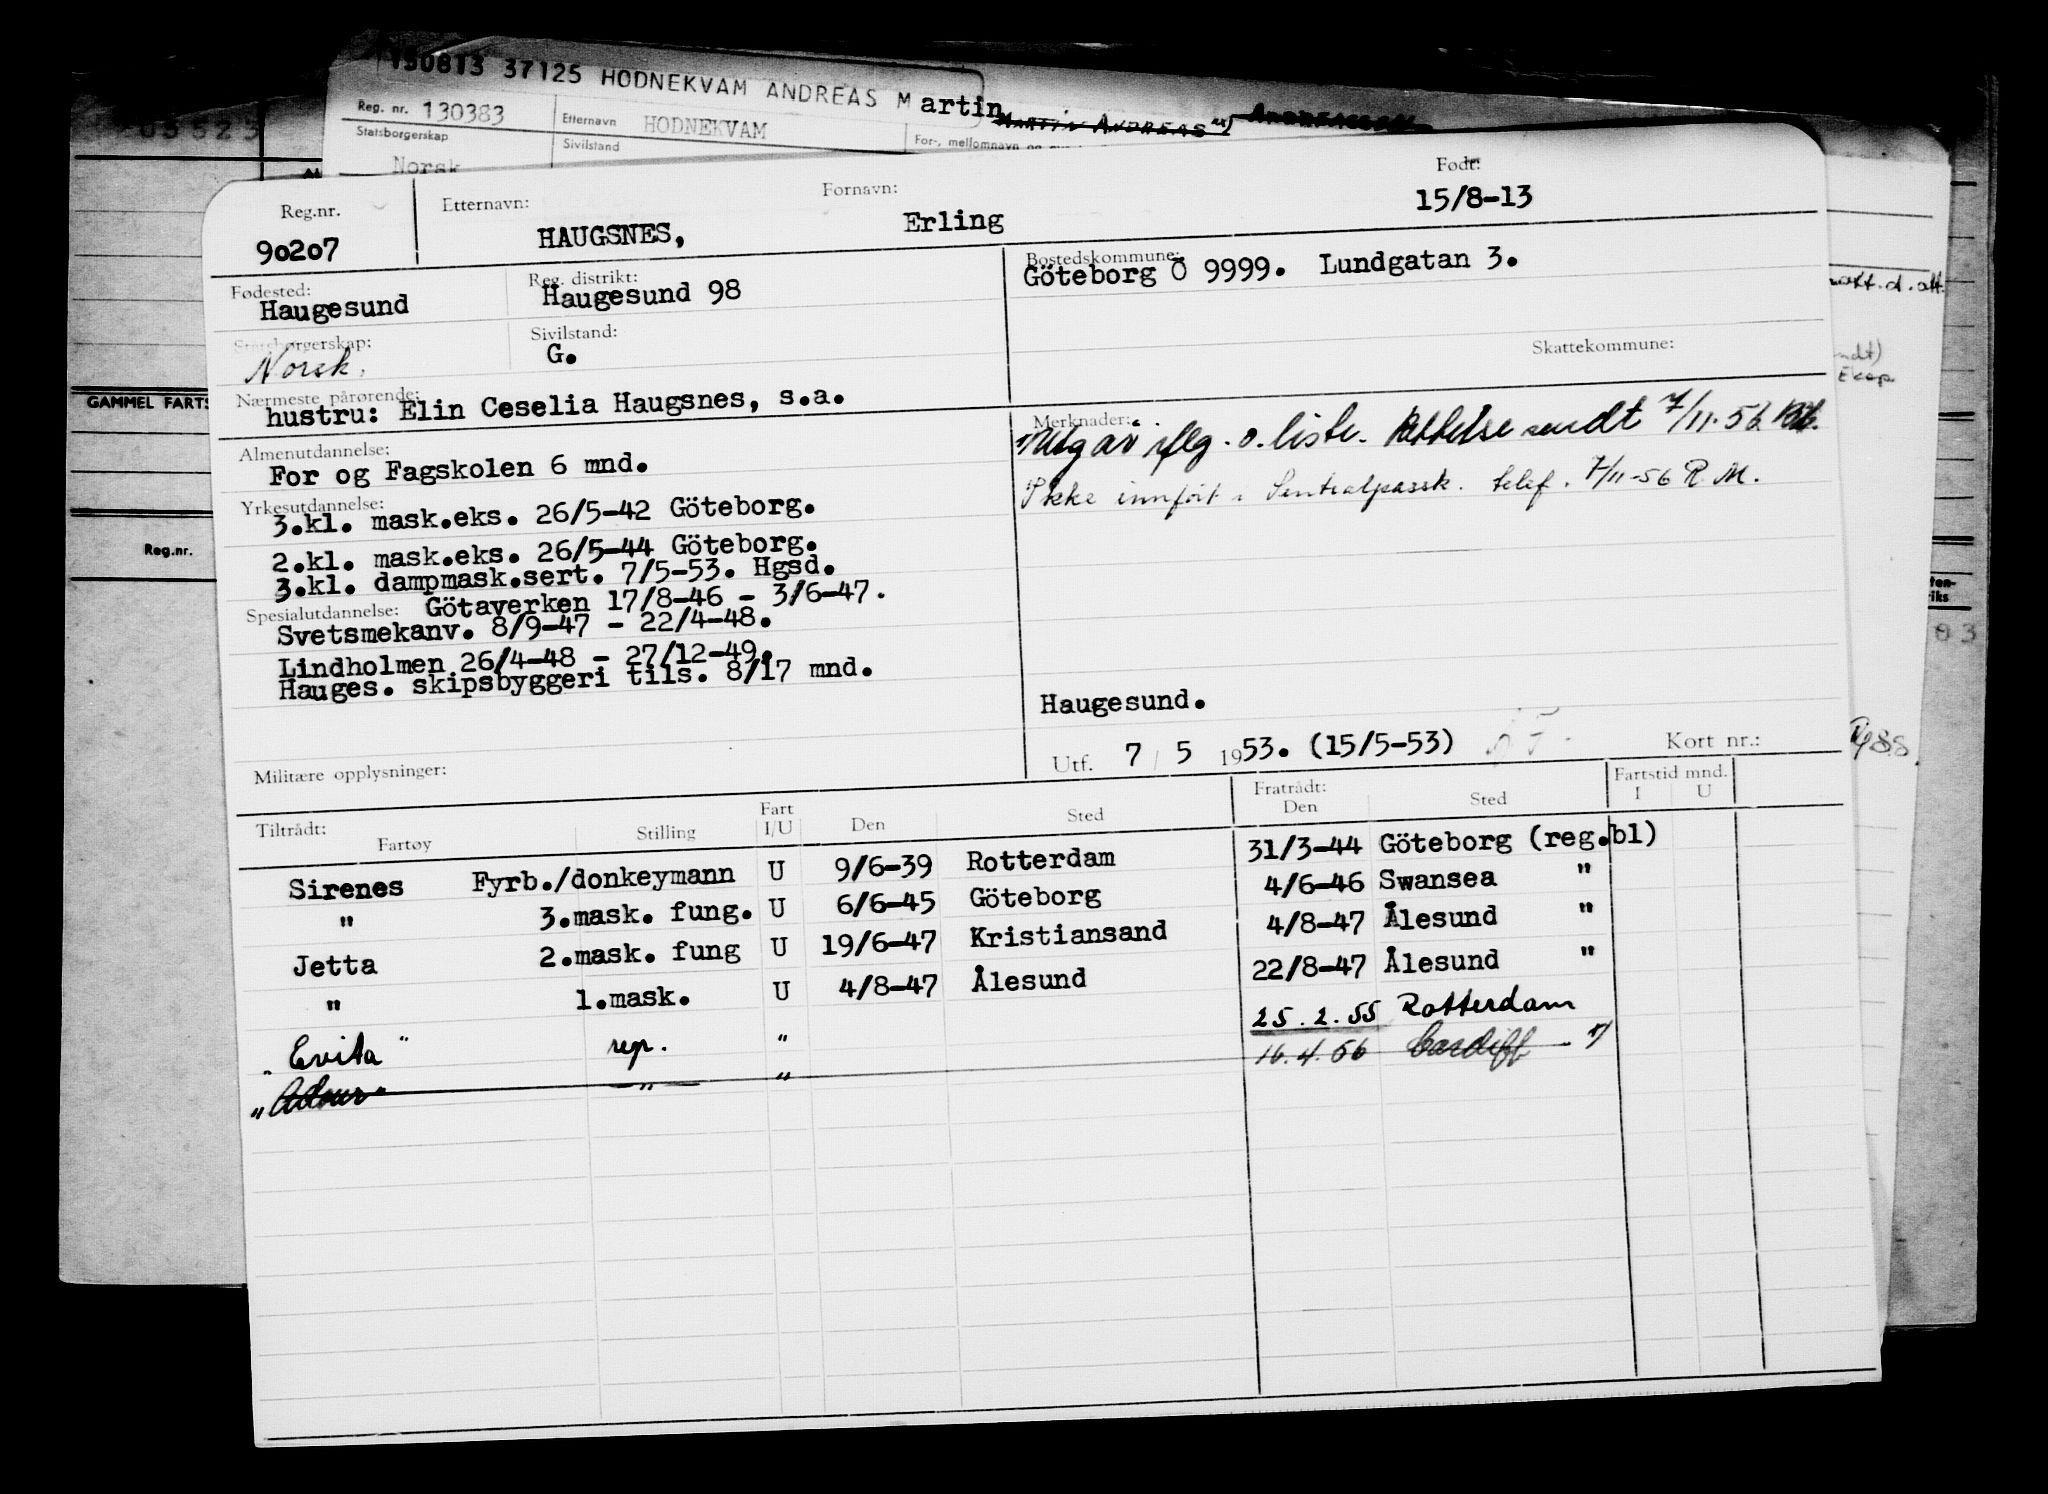 150813 37125 HODNEKVAM ANDREAS Martin
Reg. nr. 130383 Etternavn HODNEKVAM For-, mellomnavn og
Statsborgerskap Sivilstand
Norsk
GAMMEL FARTS
Reg.nr.
Reg.nr. Etternavn: Fornavn: Født:
90207 HAUGSNES, Erling 15/8-13
Fødested: Reg. distrikt: Bostedskommune:
Haugesund Haugesund 98 Göteborg Ö 9999. Lundgatan 3.
Statsborgerskap: Sivilstand: Skattekommune:
Norsk. G.
Nærmeste pårørende:
hustru: Elin Ceselia Haugsnes, s.a.
Merknader:
Utgår iflg. o. liste. Rettelse sendt 7/11-56
Ikke innført i Sentralpassk. telef. 7/11-56 R.M.
Almenutdannelse:
For og Fagskolen 6 mnd.
Yrkesutdannelse:
3.kl. mask.eks. 26/5-42 Göteborg.
2.kl. mask.eks. 26/5-44 Göteborg.
3.kl. dampmask.sert. 7/5-53. Hgsd.
Spesialutdannelse: Götaverken 17/8-46 - 3/6-47.
Svetsmekanv. 8/9-47 - 22/4-48.
Lindholmen 26/4-48 - 27/12-49.
Hauges. skipsbyggeri tils. 8/17 mnd.
Haugesund.
Utf. 7 / 5 1953. (15/5-53) Kort nr.:
Militære opplysninger:
Tiltrådt: Fratrådt: Fartstid mnd.
Fartøy Stilling Fart I/U Den Sted Den Sted I U
Sirenes Fyrb./donkeymann U 9/6-39 Rotterdam 31/3-44 Göteborg (reg.bl)
" 3.mask. fung. U 6/6-45 Göteborg 4/6-46 Swansea "
Jetta 2.mask. fung U 19/6-47 Kristiansand 4/8-47 Ålesund "
" 1.mask. U 4/8-47 Ålesund 22/8-47 Ålesund "
"Evita" rep. " 25.2.55 Rotterdam
"Adour" " " 16.4.56 Cardiff